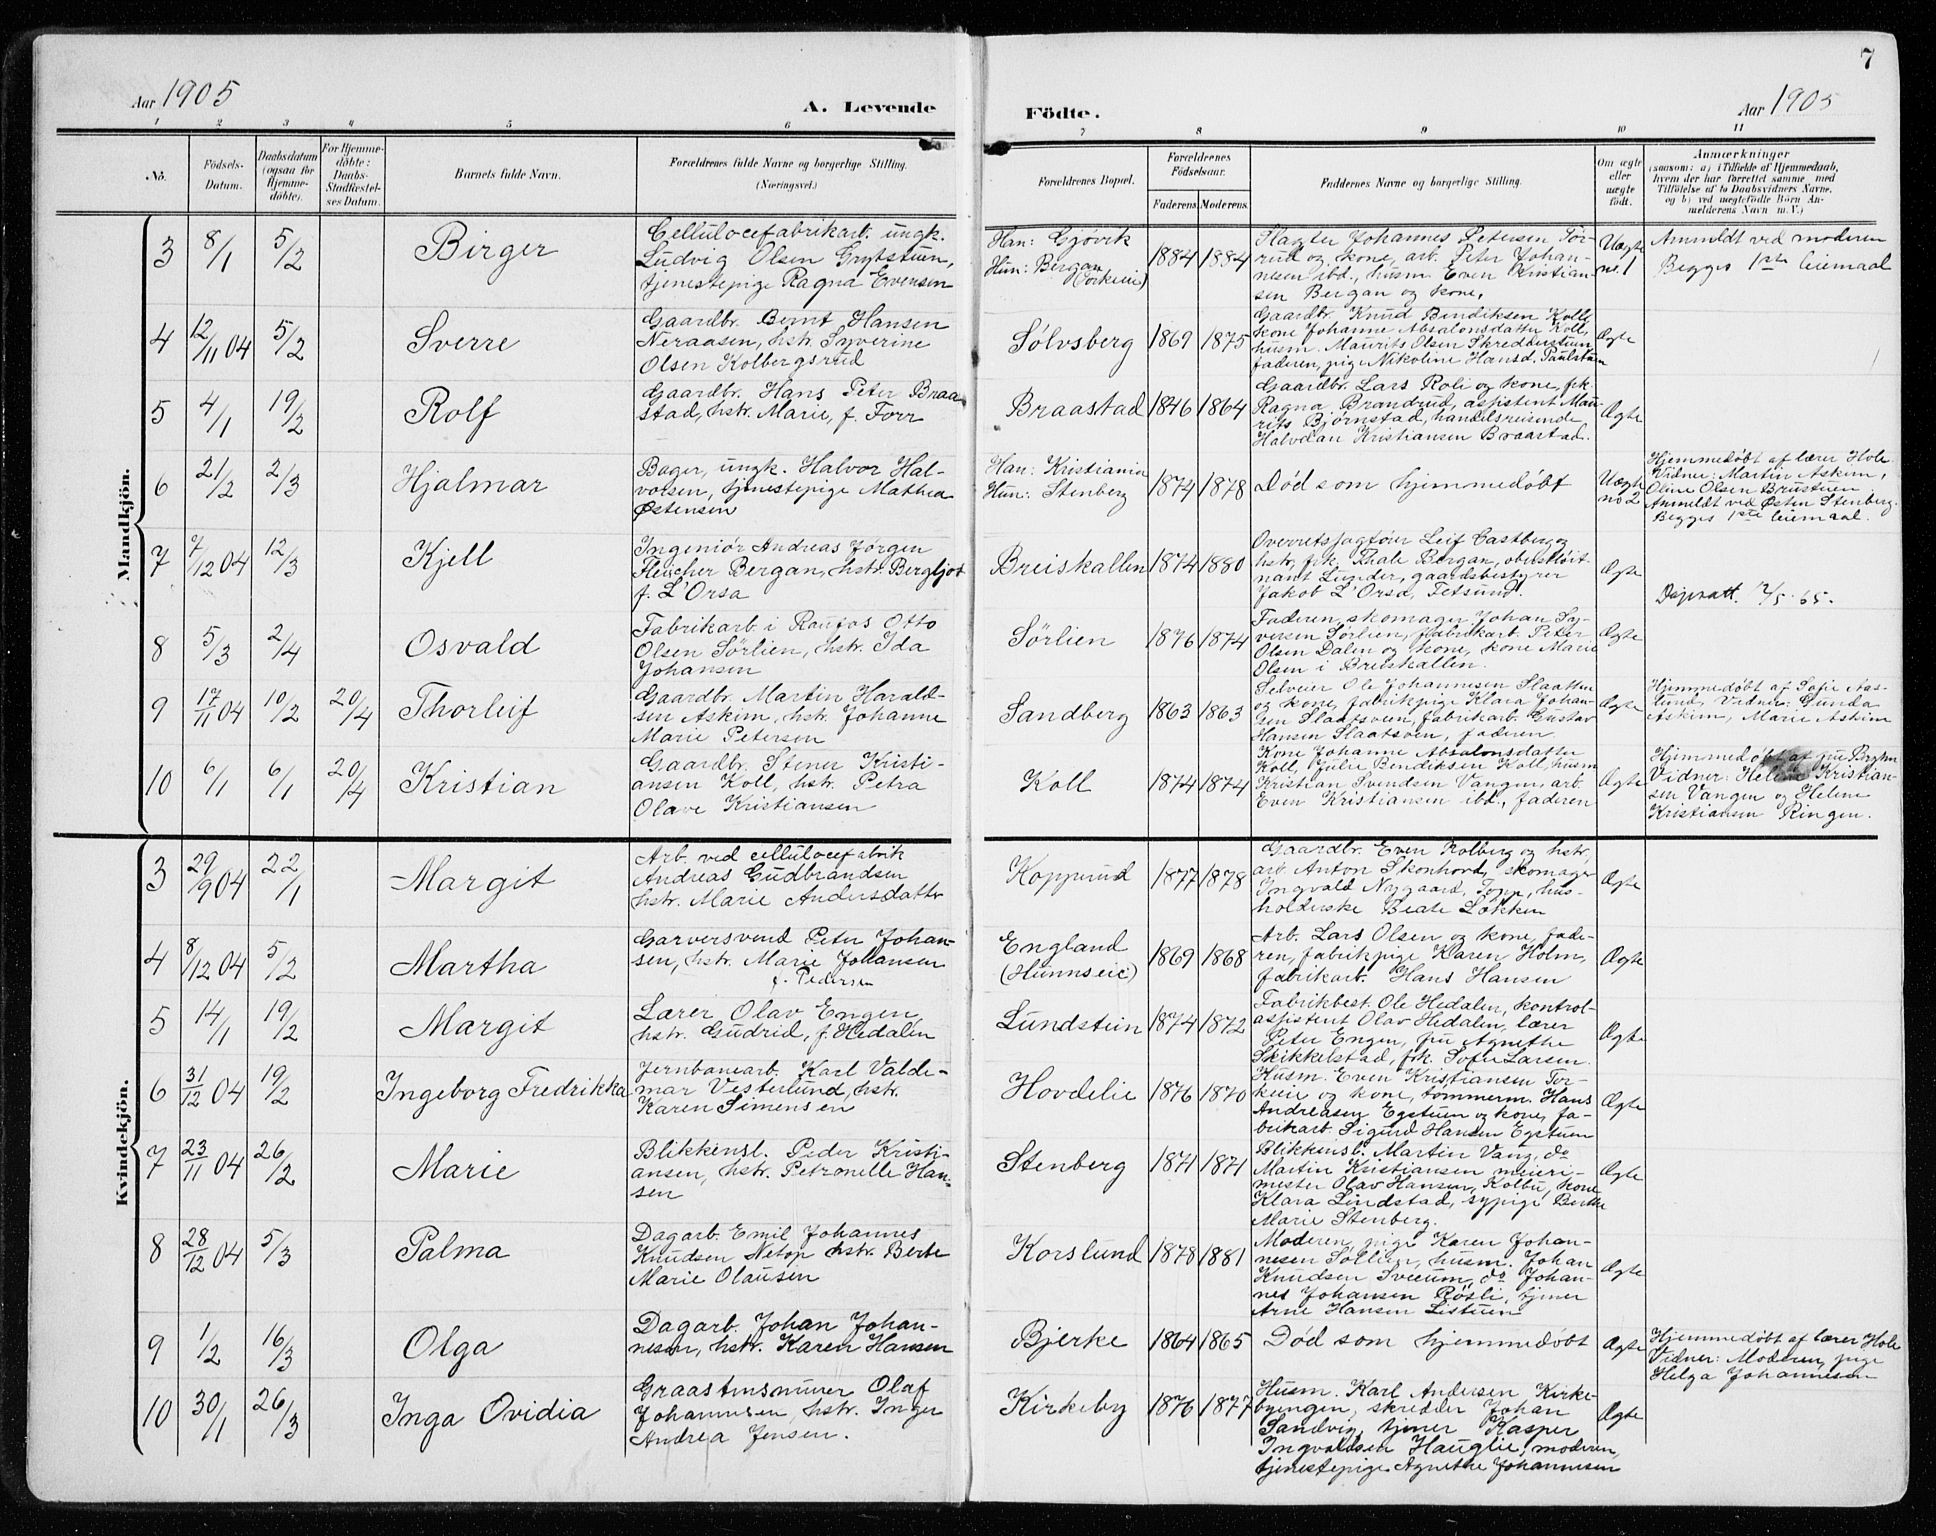 7
Aar 1905
A. Levende
Födte.
Aar 1905
1 2 3 4 5 6 7 8 9 10 11
No.
Födsels-
Datum.
Daabsdatum
(ogsaa for
Hjemme-
döbte).
For Hjemme-
döbte:
Daabs-
Stadfæstel-
ses Datum.
Barnets fulde Navn.
Forældrenes fulde Navne og borgerlige Stilling.
(Næringsvei.)
Forældrenes Bopæl.
Forældrenes
Födselsaar.
Faderens.
Moderens.
Faddernes Navne og borgerlige Stilling.
Om ægte
eller
uægte
födt.
Anmærkninger
(saasom: a) i Tilfælde af Hjemmedaab,
hvem der har forrettet samme med
Tilföielse af to Daabsvidners Navne,
og b) ved uægtefödte Börn An-
melderens Navn m. V.)
Mandkjön.
3 8/1 5/2 Birger
Cellulocefabrikarb. ungk.
Ludvig Olsen Grytstuen,
tjenestepige Ragna Evensen
Han: Gjøvik
Hun: Bergan
(Torkeie)
1884 1884
Slagter Johannes Petersen Sør-
rud og kone, arb. Peter Johan-
nesen ibd., husm Even Kristian-
sen Bergan og kone.
Uægte
no. 1
Anmeldt ved moderen
Begges 1ste leiemaal
4 12/11 04 5/2 Sverre
Gaardbr. Bernt Hansen
Neraasen, hstr. Syverine
Olsen Kolbergsrud
Sølvsberg 1869 1875
Gaardbr. Knud Bendiksen Koll,
kone Johanne Absalonsdatter Koll,
husm. Maurits Olsen Skredderstuen
faderen, pige Nikoline Hansd. Paulstuen
Ægte
5 4/1 19/2 Rolf
Gaardbr. Hans Peter Braa
stad, hstr. Marie, f. Torr
Braastad 1876 1864
Gaardbr. Lars Roli og kone, frk.
Ragna Brandrud, assistent Mau-
rits Bjørnstad, handelsreisende
Halvdan Kristiansen Braastad.
Ægte
6 21/2 2/3 Hjalmar
Bager, ungk. Halvor Hal-
vorsen, tjenestepige Mathea
Østensen
Han: Kristiania
Hun: Stenberg
1874 1878
Død som hjemmedøbt
Uægte
no 2
Hjemmedøbt af lærer Hole
Vidner: Martin Askim,
Oline Olsen Brustuen
Anmeldt ved Østen Stenberg
Begges 1ste leiemaal.
7 7/12 04 12/3 Kjell
Ingeniør Andreas Jørgen
Fleischer Bergan, hstr. Bergljot
f. L'Orsa
Breiskallen 1874 1880
Overretssagfører Leif Castberg og
hstr, frk. Thale Bergan, oberstløit-
nant Lunder, gaardsbestyrer
Jakob L'Orsa, Tetsund.
Ægte
Dåpsatt. 12/5 65.
8 5/3 2/4 Osvald
Fabrikarb. i Raufos Otto
Olsen Sørlien, hstr. Ida
Johansen
Sørlien 1876 1874
Faderen, skomager Johan Sy-
versen Sørlien, fabrikarb. Peter
Olsen Dalen og kone, kone Marie
Olsen i Breiskallen.
Ægte
9 17/11 04 10/2 20/4 Thorleif
Gaardbr. Martin Harald-
sen Askim, hstr. Johanne
Marie Petersen
Sandberg 1863 1863
Selveier Ole Johannesen Slaatten
og kone, fabrikpige Klara Johan-
sen Slaatsveen, fabrikarb. Gustav
Hansen Slaatsveen, faderen.
Ægte
Hjemmedøbt af Sofie Aas-
lund, Vidner: Gunda
Askim, Marie Askim
10 6/1 6/1 20/4 Kristian
Gaardbr. Stener Kristi-
ansen Koll, hstr. Petra
Olave Kristiansen
Koll 1874 1874
Kone Johanne Absalonsdatter
Koll, Julie Bendiksen Koll, husm
Kristian Svendsen Vangen, arb.
Even Kristiansen ibd., faderen
Ægte
Hjemmedøbt af fru Bryhn
Vidner: Helene Kristian-
sen Vangen og Helene
Kristiansen Ringen.
Kvindekjön.
3 29/9 04 22/1 Margit
Arb. ved cellulocefabrik
Andreas Gudbrandsen
hstr. Marie Andersdatter
Kopperud 1877 1878
Gaardbr. Even Kolberg og hstr,
arb. Anton Skonhord, skomager
Ingvald Nygaard, Topp, hus-
holderske Beate Løkken
Ægte
4 8/12 04 5/2 Martha
Garversvend Peter Johan-
sen, hstr. Marie Johansen
f. Pedersen
England
(Hunnseie)
1869 1868
Arb. Lars Olsen og kone, fade-
ren, fabrikpige Karen Holm,
fabrikarb. Hans Hansen
Ægte
5 14/1 19/2 Margit
Lærer Olav Engen,
hstr. Gudrid, f. Hedalen
Lundstein 1874 1872
Fabrikbest. Ole Hedalen, kontrol-
assistent Olav Hedalen, lærer
Peter Engen, fru Agnethe
Skikkelstad, frk. Sofie Larsen.
Ægte
6 31/12 04 19/2 Ingeborg Fredrikka
Jernbanearb. Karl Valde-
mar Vesterlund, hstr.
Karen Simensen
Hovdelie 1876 1870
Husm. Even Kristiansen Tor-
keie og kone, tømmerm. Hans
Andreasen Egstuen og kone, fa-
brikarb. Sigurd Hansen Egstuen
Ægte
7 23/11 04 26/2 Marie
Blikkensl. Peder Kristi-
ansen, hstr. Petronelle Han-
sen
Stenberg 1871 1871
Blikkensl. Martin Vang, do
Martin Kristiansen meieri-
mester Olav Hansen, Kolbu, kone
Klara Lindstad, sypige Berthe
Marie Stenberg.
Ægte
8 28/12 04 5/3 Palma
Dagarb. Emil Johannes
Knudsen Netop hstr. Berte
Marie Olausen
Korslund 1878 1881
Moderen, pige Karen Johan-
nesen Sollien, husm. Johan
Knudsen Sveeum, do Johan-
nes Johansen Røsli, tjener
Arne Hansen Listuen
Ægte
9 1/2 16/3 Olga
Dagarb. Johan Johan-
nesen, hstr. Karen Hansen
Bjerke 1864 1865
Død som hjemmedøbt
Ægte
Hjemmedøbt af lærer Hole
Vidner: Moderen, pige
Helga Johannesen
10 30/1 26/3 Inga Ovidia
Graastensmurer Olaf
Johannesen, hstr. Inger
Andrea Jensen.
Kirkeby 1876 1877
Husm. Karl Andersen Kirke-
byengen, skredder Johan
Sandvig, tjener Kasper
Ingvaldsen Hauglie, moderen,
tjenestepige Agnethe Johannesen
Ægte